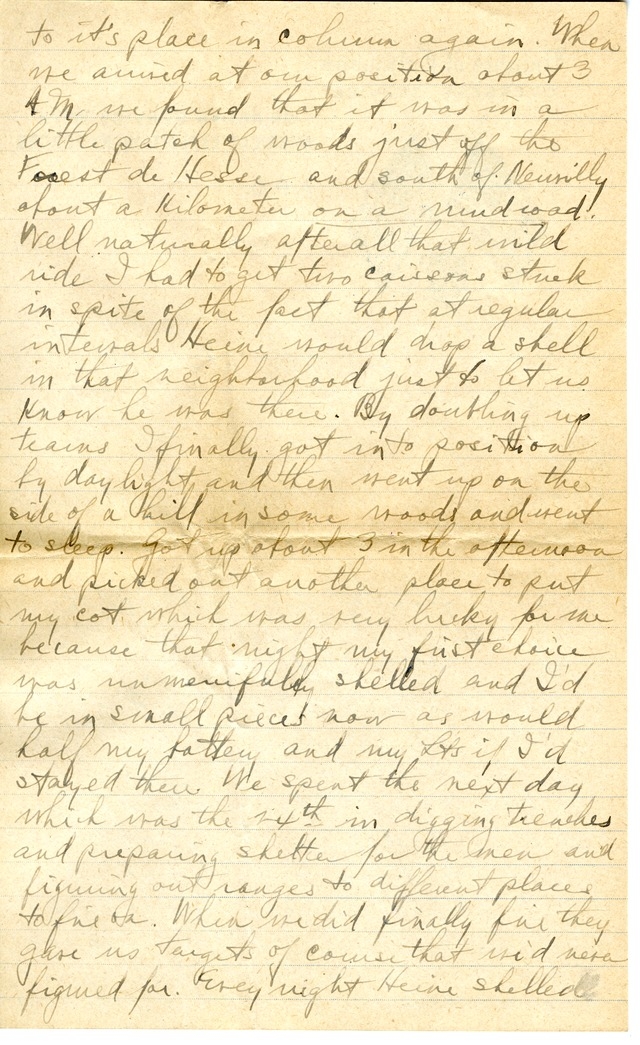 to it's place in column again. When
we arrived at our position about 3
A.M. we found that it was in a
little patch of woods just off the
Forest de Hesse and south of Neuvilly
about a Kilometer on a mud road.
Well naturally after all that wild
ride I had to get two caissons stuck
in spite of the fact that at regular
intervals Heine would drop a shell
in that neighborhood just to let us
know he was there. By doubling up
teams I finally got into position
by daylight, and then went up on the
side of a hill in some woods and went
to sleep. Got up about 3 in the afternoon
and picked out another place to put
my cot which was very lucky for me
because that night my first choice
was unmercifully shelled and I'd
be in small pieces now as would
half my battery and my Lts if I'd
stayed there. We spent the next day
which was the 24th in digging trenches
and preparing shelter for the men and
figuring out ranges to different places
to fire on. When we did finally fire they
gave us targets of course that we'd never
figured for. Every night Heine shelled